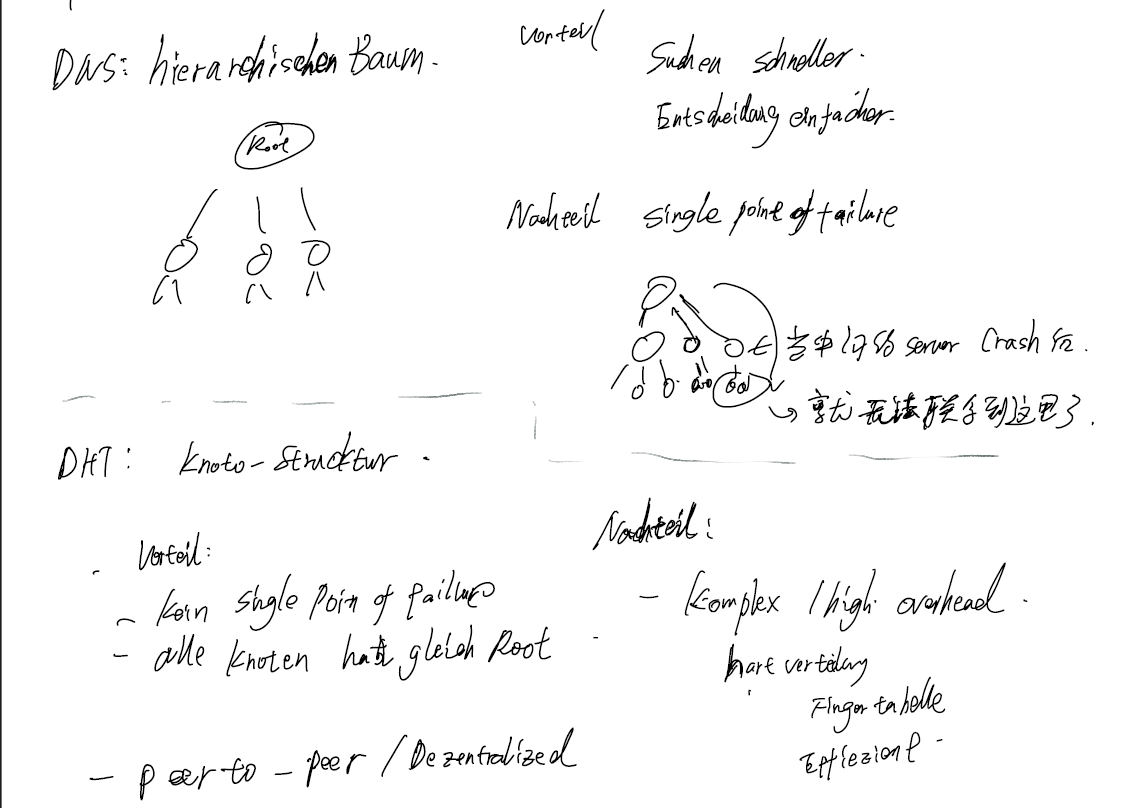 DNS: hierarchischen Baum.
Root
Vorteil
Suchen schneller.
Entscheidung einfacher.
Nachteil single point of failure
当中间的 server Crash 后.
就无法联系到这里了.
DHT: Knoto-Struktur.
Vorteil:
- Kein single Poin of failure
- alle Knoten hat gleich Root
- peer to - peer / Dezentralized
Nachteil:
- Komplex / high overhead.
hart verteilung
Finger tabelle
Effiezient